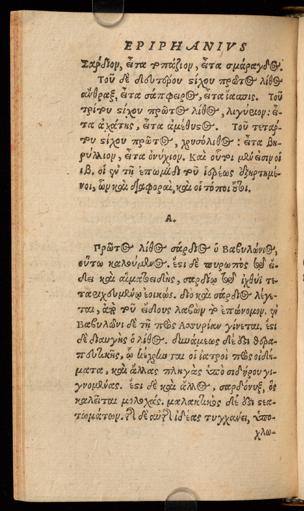 EPIPHANIVS
Σάρδιον, εἶτα τοπάζιον, εἶτα σμάραγδος.
Τοῦ δὲ δευτέρου στίχου πρῶτος λίθος
ἄνθραξ, εἶτα σάπφειρος, εἶτα ἴασπις. Τοῦ
τρίτου στίχου πρῶτος λίθος, λιγύριον: εἶ-
τα ἀχάτης, εἶτα ἀμέθυσος. Τοῦ τετάρ-
του στίχου πρῶτος, χρυσόλιθος: εἶτα βη-
ρύλλιον, εἶτα ὀνύχιον. Καὶ οὗτοι μέν εἰσιν οἱ
ιβ, οἱ ἐν τῇ ἐπωμίδι τοῦ ἱερέως ἐξηρτημέ-
νοι, ὧν καὶ διαφοραὶ, καὶ οἱ τόποι οἵδε.
Α.
Πρῶτος λίθος σάρδιος ὁ Βαβυλώνιος,
οὕτω καλούμενος. ἔστι δὲ πυρωπὸς τῷ εἴ-
δει καὶ αἱματοειδὴς, σαρδίῳ τῷ ἰχθύϊ τε-
ταριχευμένῳ ἐοικώς. διὸ καὶ σάρδιος λέγε-
ται, ἀπὸ τοῦ εἴδους λαβὼν τὸ ἐπώνυμον. ἐν
Βαβυλῶνι δὲ τῇ πρὸς Ἀσσυρίαν γίνεται. ἔστι
δὲ διαυγὴς ὁ λίθος. δυνάμεως δέ ἐστι θερα-
πευτικῆς, ᾧ κέχρηνται οἱ ἰατροὶ πρὸς οἰδή-
ματα, καὶ ἄλλας πληγὰς ὑπὸ σιδήρου γι-
γνομένας. ἔστι δὲ καὶ ἄλλος, σαρδόνυξ, ὃς
καλεῖται μολοχάς. μαλακτικὸς δέ ἐστι στεα-
τωμάτων. τῆς δὲ αὐτῆς ἰδέας τυγχάνει, ὑπο-
χλω-